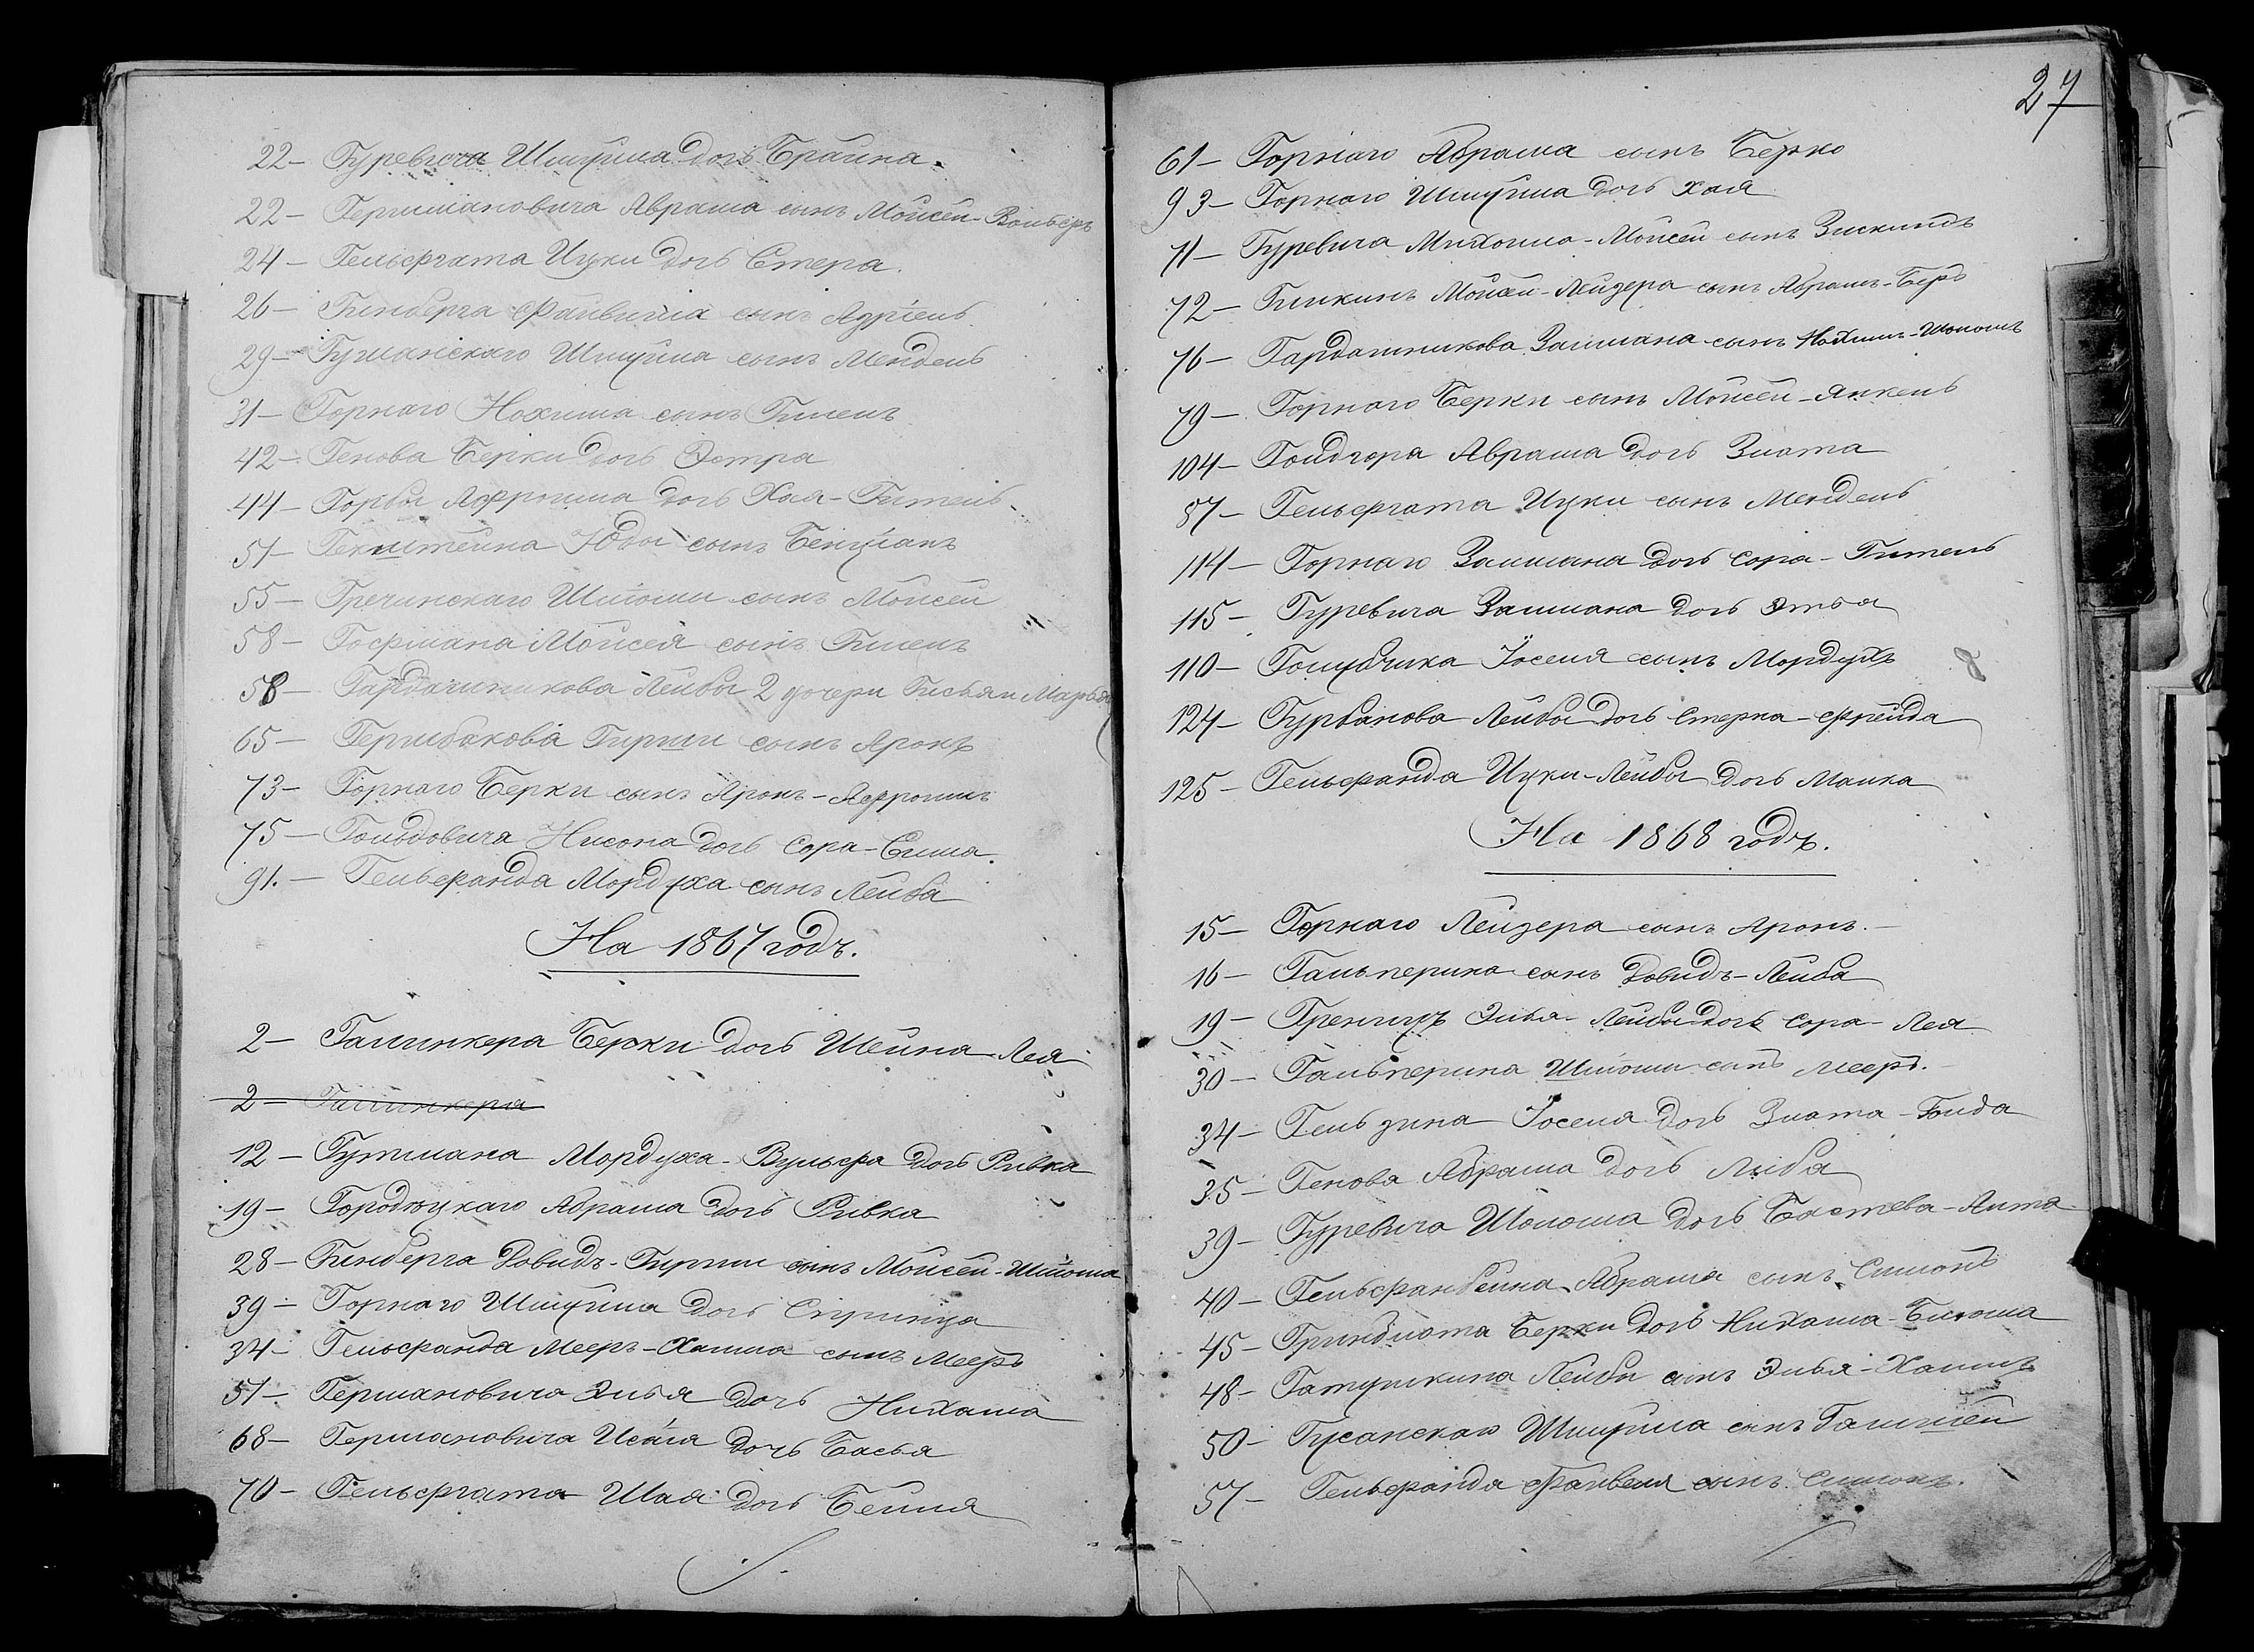 22 – Гуревича Шмуйла дочь Брайна.
22 – Гершмановича Абрама сынъ Мойсей-Вольфъ
24 – Гельфгата Ицки дочь Стера.
26 – Гинберга Файвиша сынъ Адріель
29 – Гуманскаго Шмуйла сынъ Мендель
31 – Горнаго Нохима сынъ Гилель
42 – Генова Берки дочь Эстра
44 – Афроима дочь Хая-Гитель
51 – Гекштейна Юды сынъ Бенціанъ
55 – Гречинскаго Шліомы сынъ Мойсей
58 – Гофмана Мойсея сынъ Гилель
58 – Гардашникова Лейбы 2 дочери Гисья и Марья
65 – Гиршы сынъ Аронъ
73 – Горнаго Берки сынъ Аронъ-Афроимъ
75 – Гольдовича Нисона дочь Сора-Сима.
91. – Гельфанда Мордуха сынъ Лейба
На 1867 годъ.
2 – Галинкера Берки дочь Шейна-Лея
2 – Галинкера
12 – Гутмана Мордуха-Вульфа дочь Ривка
19 – Городецкаго Абрама дочь Ривка
28 – Гинберга Довидъ-Гирши сынъ Мойсей-Шліома
39 – Горнаго Шмуйла дочь Спринца
34 – Гельфанда Мееръ-Хаима сынъ Мееръ
51 – Германовича Элья дочь Нихама
68 – Германовича Исаія дочь Басья
70 – Гельфгата Шая дочь Бейля
27
61 – Горнаго Абрама сынъ Берко
93 – Горнаго Шмуйла дочь Хая
71 – Гуревича Михоила-Мойсей сынъ Зискиндъ
72 – Гликинъ Мойсей-Лейзера сынъ Абрамъ-Беръ
76 – Гардашникова Залмана сынъ Нохимъ-Шоломъ
79 – Горнаго Берки сынъ Мойсей-Янкель
104 – Гольдгора Абрама дочь Злата
87 – Гельфгата Ицки сынъ Мендель
114 – Горнаго Залмана дочь Сора-Гитель
115 – Гуревича Залмана дочь Этья
110 – Голубчика Іоселя сынъ Мордухъ
124 – Гурбанова Лейбы дочь Стерна-Фрейда
125 – Гельфанда Ицки-Лейбы дочь Малка
На 1868 годъ.
15 – Горнаго Лейзера сынъ Аронъ. –
16 – Гальперина сынъ Довидъ-Лейба
19 – Греницъ Элья-Лейбы дочь Сора-Лея
30 – Гальперина Шліомы сынъ Мееръ.
34 – Гельзина Іоселя дочь Злата-Голда
35 – Генова Абрама дочь Либа
39 – Гуревича Шолома дочь Бастева-Алта
40 – Гельфанбейна Абрама сынъ Симонъ
45 – Гринблата Берки дочь Нихама-Блюма
48 – Гатушкина Лейбы сынъ Элья-Хаимъ
50 – Гусанскаго Шмуйла сынъ
57 – Гельфанда Файвеля сынъ Симонъ.